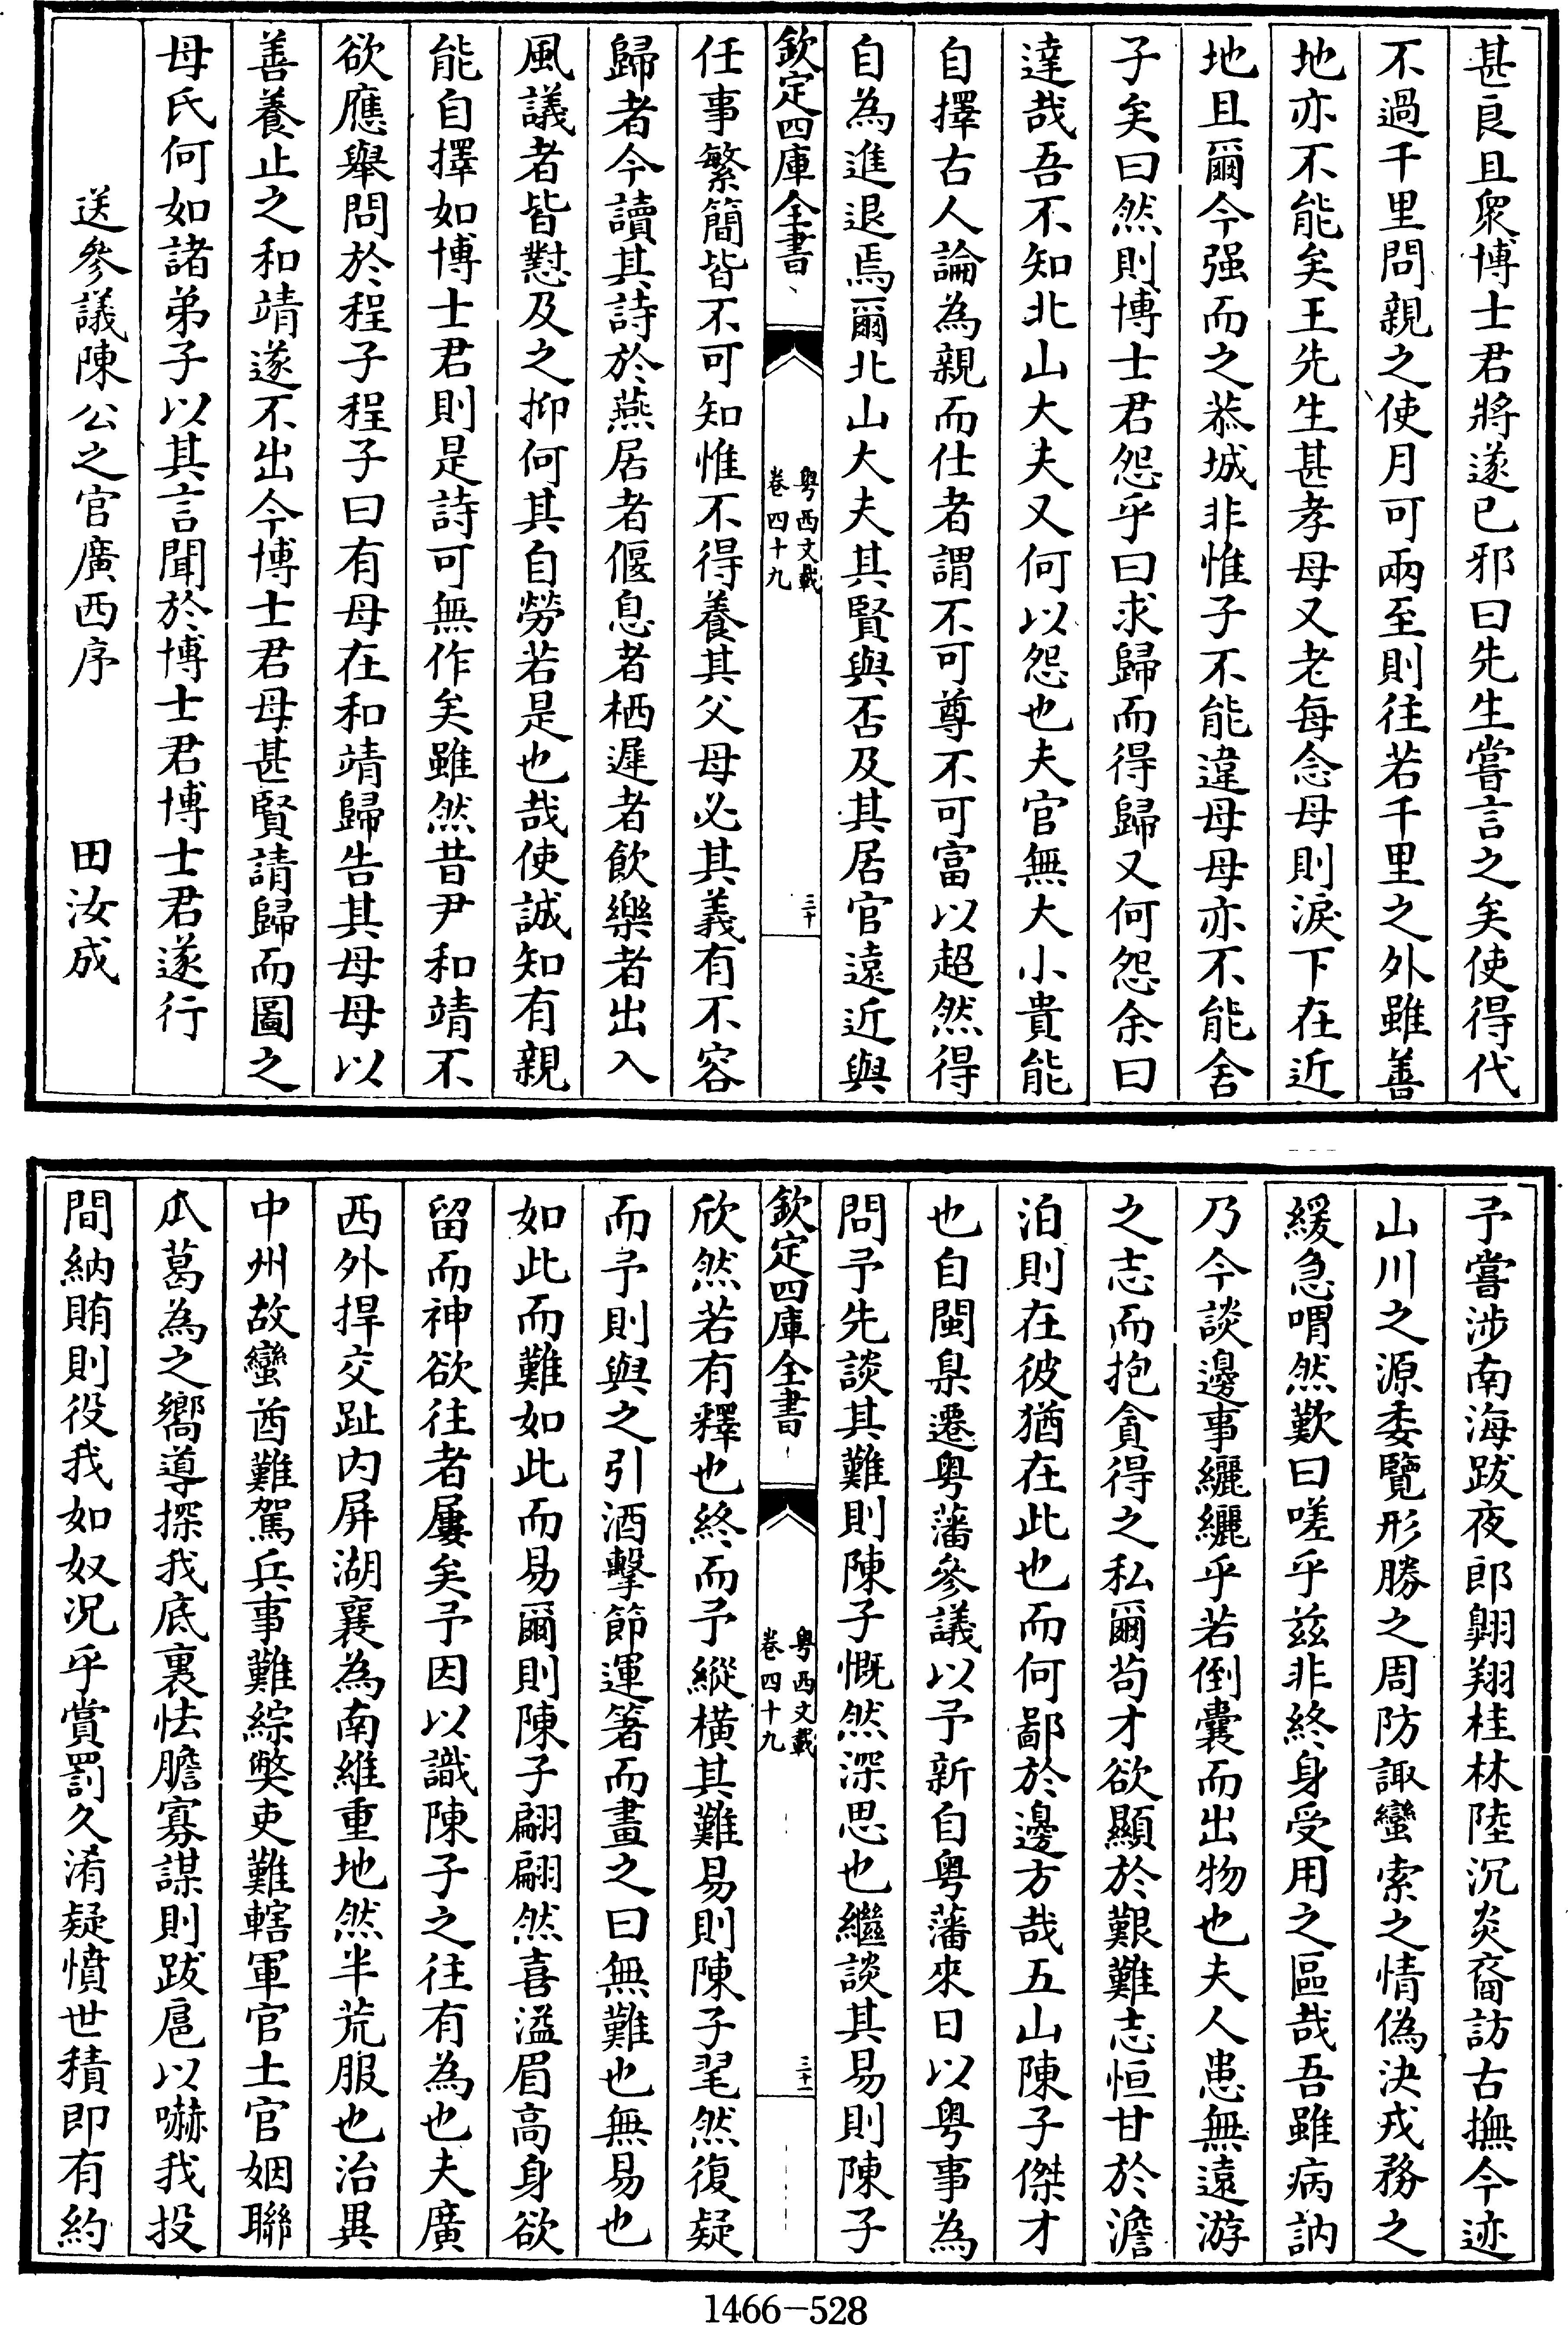 甚良且衆博士君將遂已邪曰先生嘗言之矣使得代
不過千里問親之使月可兩至則往若千里之外雖善
地亦不能矣王先生甚孝母又老每念母則淚下在近
地且爾今强而之恭城非惟子不能違母母亦不能舍
子矣曰然則博士君怨乎曰求歸而得歸又何怨余曰
達哉吾不知北山大夫又何以怨也夫官無大小貴能
自擇古人論為親而仕者謂不可尊不可富以超然得
自為進退焉爾北山大夫其賢與否及其居官遠近與
欽定四庫全書
粤西文載
卷四十九
三十
任事繁簡皆不可知惟不得養其父母必其義有不容
歸者今讀其詩於燕居者偃息者栖遲者飲樂者出入
風議者皆懟及之抑何其自勞若是也哉使誠知有親
能自擇如博士君則是詩可無作矣雖然昔尹和靖不
欲應舉問於程子程子曰有母在和靖歸告其母母以
善養止之和靖遂不出今博士君母甚賢請歸而圖之
母氏何如諸弟子以其言聞於博士君博士君遂行
送參議陳公之官廣西序 田汝成
予嘗涉南海跋夜郎翺翔桂林陸沉炎裔訪古撫今迹
山川之源委覽形勝之周防諏蠻索之情偽決戎務之
緩急喟然歎曰嗟乎兹非終身受用之區哉吾雖病訥
乃今談邊事纚纚乎若倒囊而出物也夫人患無遠游
之志而抱貪得之私爾苟才欲顯於艱難志恒甘於澹
泊則在彼猶在此也而何鄙於邊方哉五山陳子傑才
也自閩臬遷粤藩參議以予新自粤藩來日以粤事為
問予先談其難則陳子慨然深思也繼談其易則陳子
欽定四庫全書
粤西文載
卷四十九
三十一
欣然若有釋也終而予縱横其難易則陳子毣然復疑
而予則與之引酒擊節運箸而畫之曰無難也無易也
如此而難如此而易爾則陳子翩翩然喜溢眉高身欲
留而神欲往者屢矣予因以識陳子之往有為也夫廣
西外捍交趾内屏湖襄為南維重地然半荒服也治異
中州故蠻酋難駕兵事難綜獘吏難轄軍官土官姻聯
瓜葛為之嚮導探我底裏怯膽寡謀則跋扈以嚇我投
間納賄則役我如奴况乎賞罰久淆疑憤世積即有約
1466-528